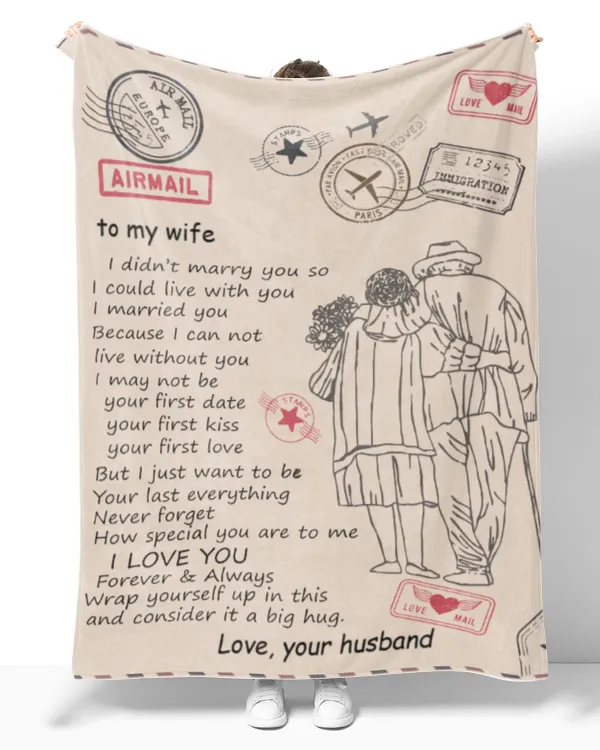 AIR MAIL
EUROPE
STAMPS
LOVE MAIL
AIRMAIL
PAR AVION • FAST POST • AIR MAIL
PARIS
12345
IMMIGRATION
to my wife
I didn't marry you so
I could live with you
I married you
Because I can not
live without you
I may not be
your first date
your first kiss
your first love
STAMPS
But I just want to be
Your last everything
Never forget
How special you are to me
I LOVE YOU
Forever & Always
Wrap yourself up in this
and consider it a big hug.
LOVE MAIL
Love, your husband